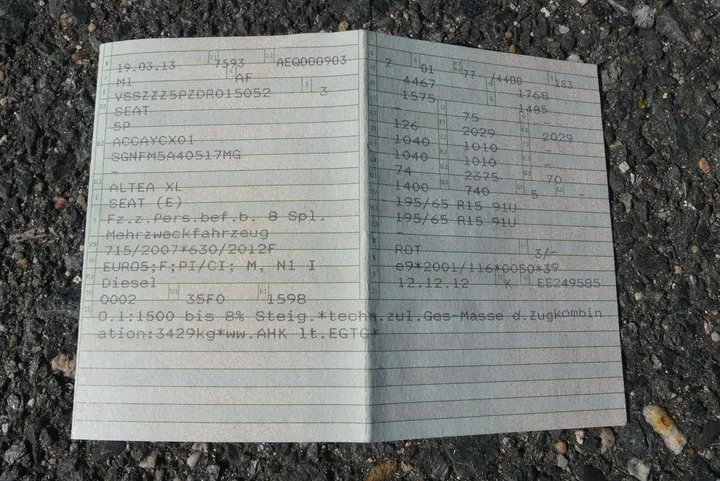 19.03.13 7593 AEQ000903
M1 AF
VSSZZZ5PZDR015052 3
SEAT
5P
ACCAYCX01
SGNFM5A40517MG
–
ALTEA XL
SEAT (E)
Fz.z.Pers.bef.b. 8 Spl.
Mehrzweckfahrzeug
715/2007*630/2012F
EURO5;F;PI/CI; M, N1 I
Diesel
0002 35F0 1598
2 01 77 /4400 183
4467 1768
1575 1485
75 –
126 2029 2029
1040 1010 –
1040 1010 –
74 2375 70
1400 740 5 –
195/65 R15 91U
195/65 R15 91U
–
ROT 3/–
e9*2001/116*0050*39
12.12.12 K EE249585
O.1:1500 bis 8% Steig.*techn.zul.Ges-Masse d.Zugkombin
ation:3429kg*ww.AHK lt.EGTG*